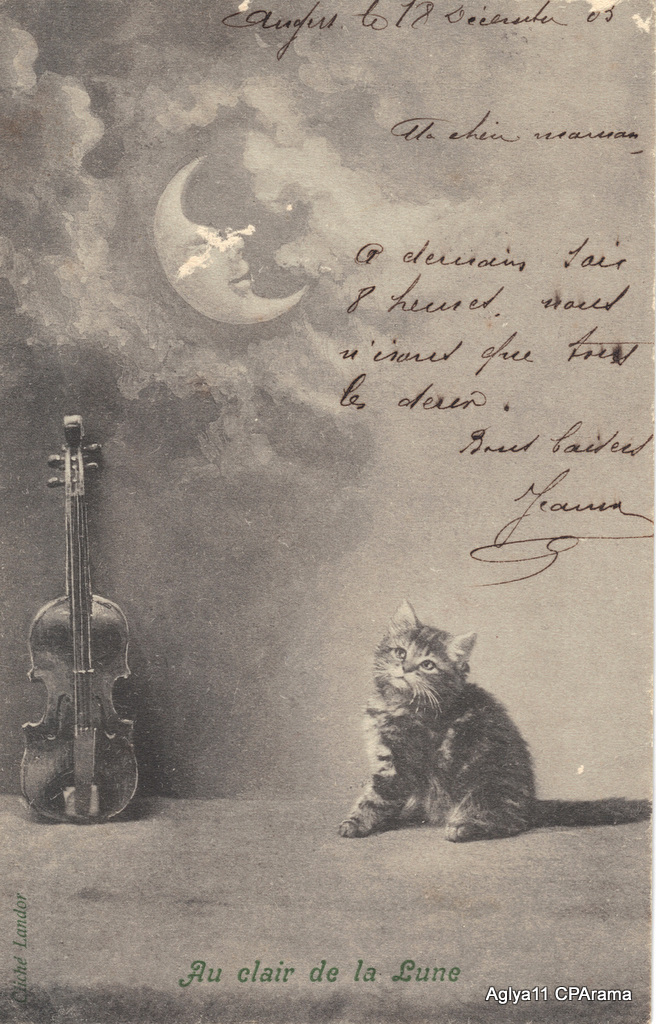 Angers le 18 Décembre 03
Ma chère maman,
A demain soir
8 heures, nous
n'irons que tous
les deux.
Bons baisers
Jeanne
Cliché Landor
Au clair de la Lune
Aglya11 CPArama